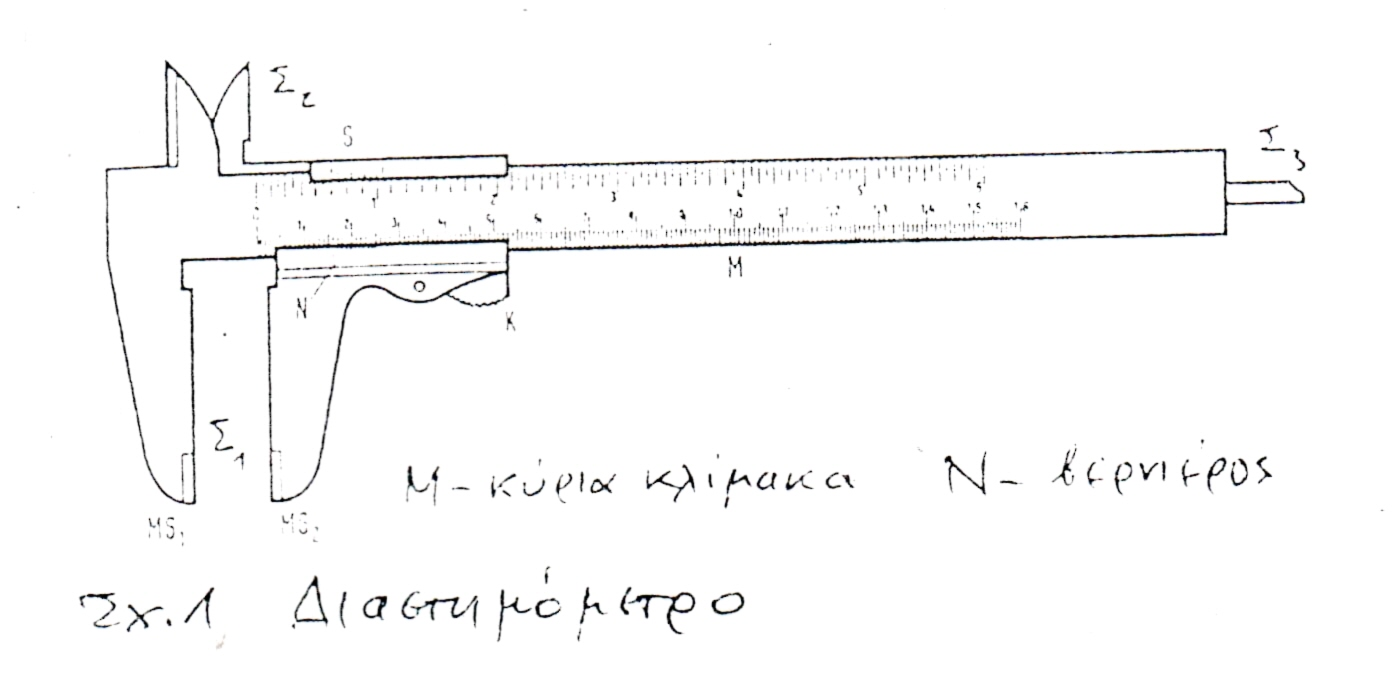 Σ₂
S
Σ₃
1 2 3 4 5
1 2 3 4 5 6 7 8 9 10 11 12 13 14 15 16
M
N
K
Σ₁
M - κύρια κλίμακα N - βερνιέρος
MS₁ MS₂
Σχ.1 Διαστημόμετρο